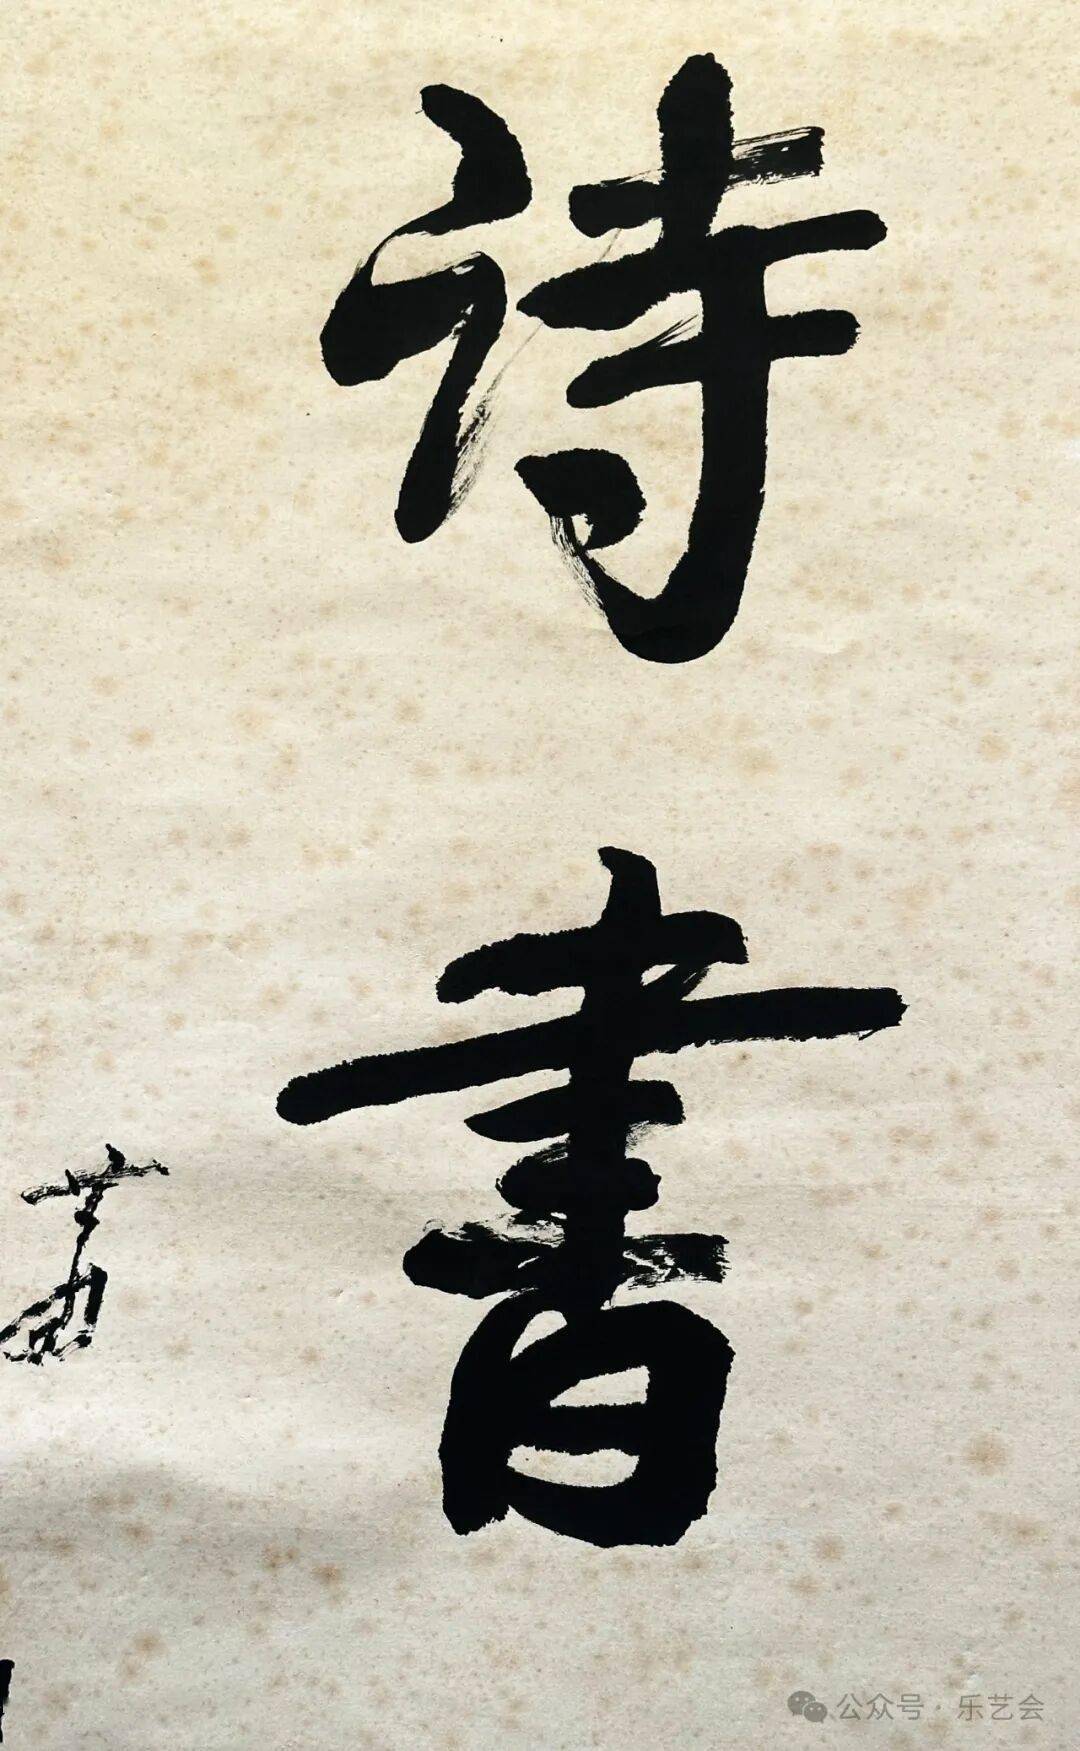 诗書
公众号·乐艺会